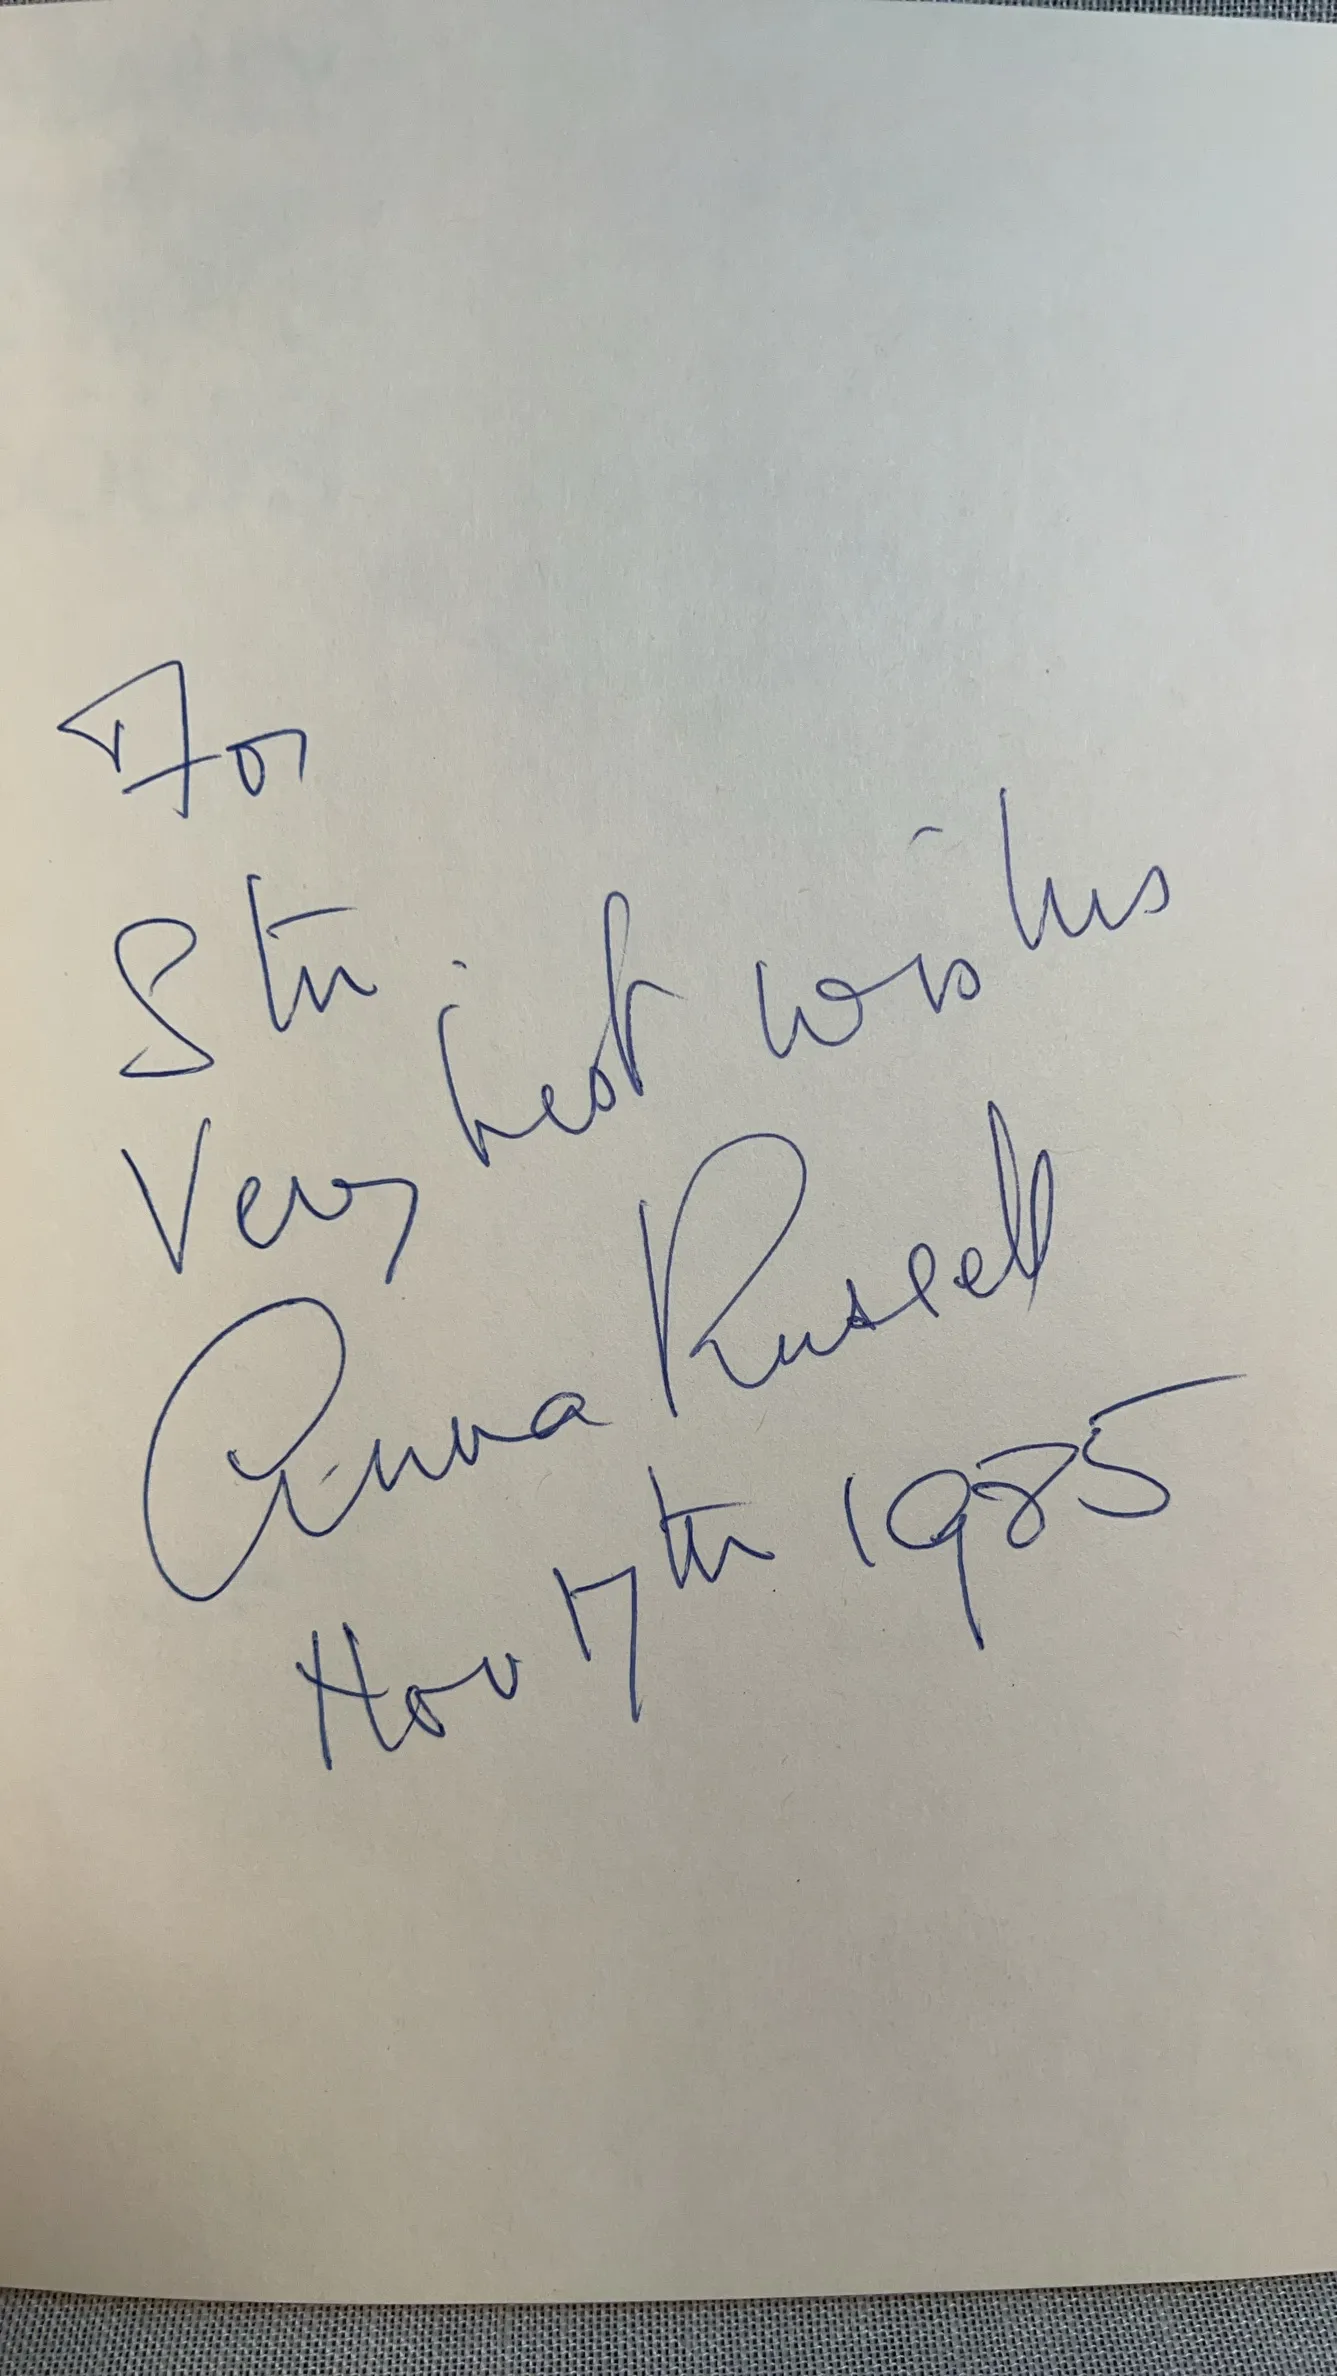 For
Stu
Very best wishes
Anna Russell
Nov 17th 1985